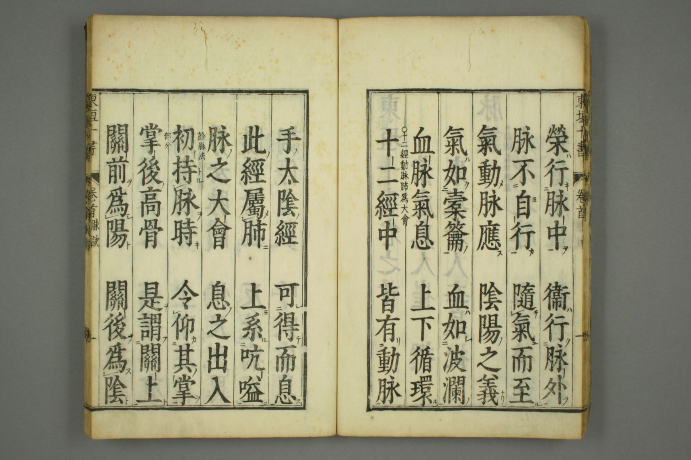 榮行脉中　衞行脉外
脉不自行　隨氣而至
氣動脉應　陰陽之義
氣如橐籥　血如波瀾
血脉氣息　上下循環
十二經中　皆有動脉
手太陰經　可得而息
此經屬肺　上系吭嗌
脉之大會　息之出入
初持脉時　令仰其掌
掌後高骨　是謂關上
關前爲陽　關後爲陰
東垣十書
卷首